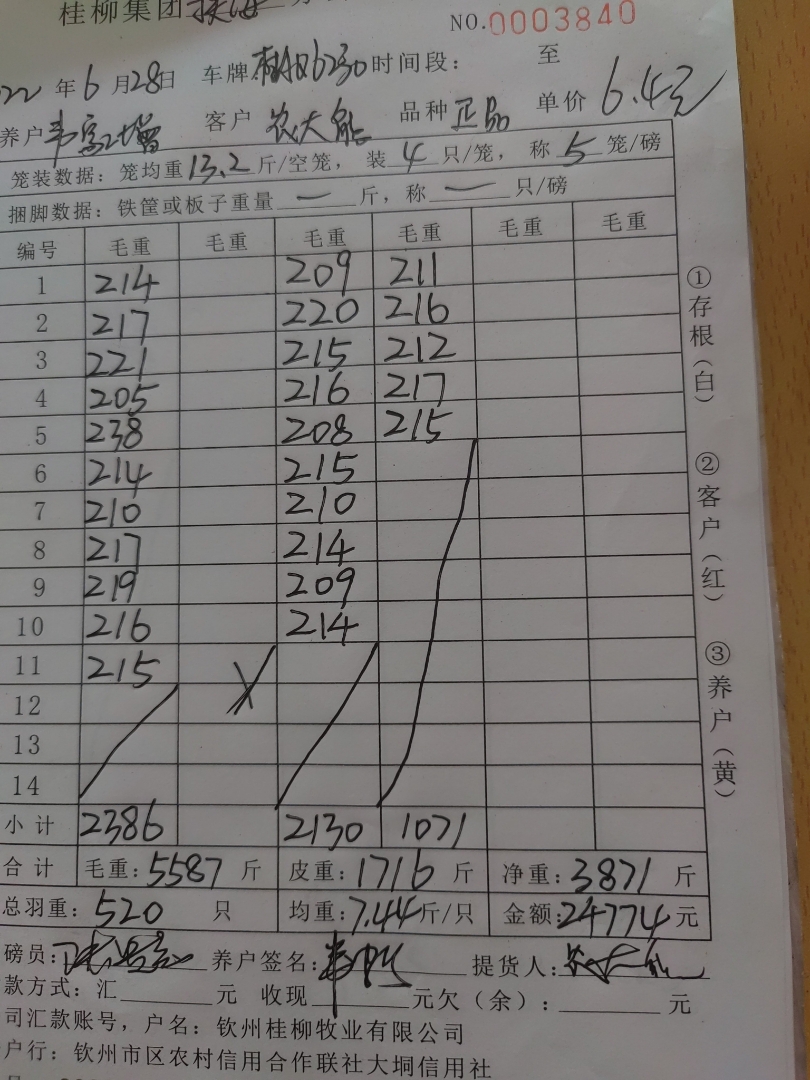 桂柳集团
NO.0003840
22年6月28日 车牌桂柳6230时间段： 至
养户 韦富增 客户 农大能 品种 正品 单价 6.4元
笼装数据：笼均重13.2斤/空笼，装4只/笼，称5笼/磅
捆脚数据：铁筐或板子重量一斤，称一只/磅
编号 毛重 毛重 毛重 毛重 毛重 毛重
1 214 209 211
2 217 220 216
3 221 215 212
4 205 216 217
5 238 208 215
6 214 215
7 210 210
8 217 214
9 219 209
10 216 214
11 215
12
13
14
小计 2386 2130 1071
合计 毛重：5587斤 皮重：1716斤 净重：3871斤
总羽重：520只 均重：7.44斤/只 金额：24774元
磅员： 养户签名： 提货人：农大能
款方式：汇 元 收现 元欠（余）： 元
司汇款账号，户名：钦州桂柳牧业有限公司
户行：钦州市区农村信用合作联社大垌信用社
①存根（白） ②客户（红） ③养户（黄）